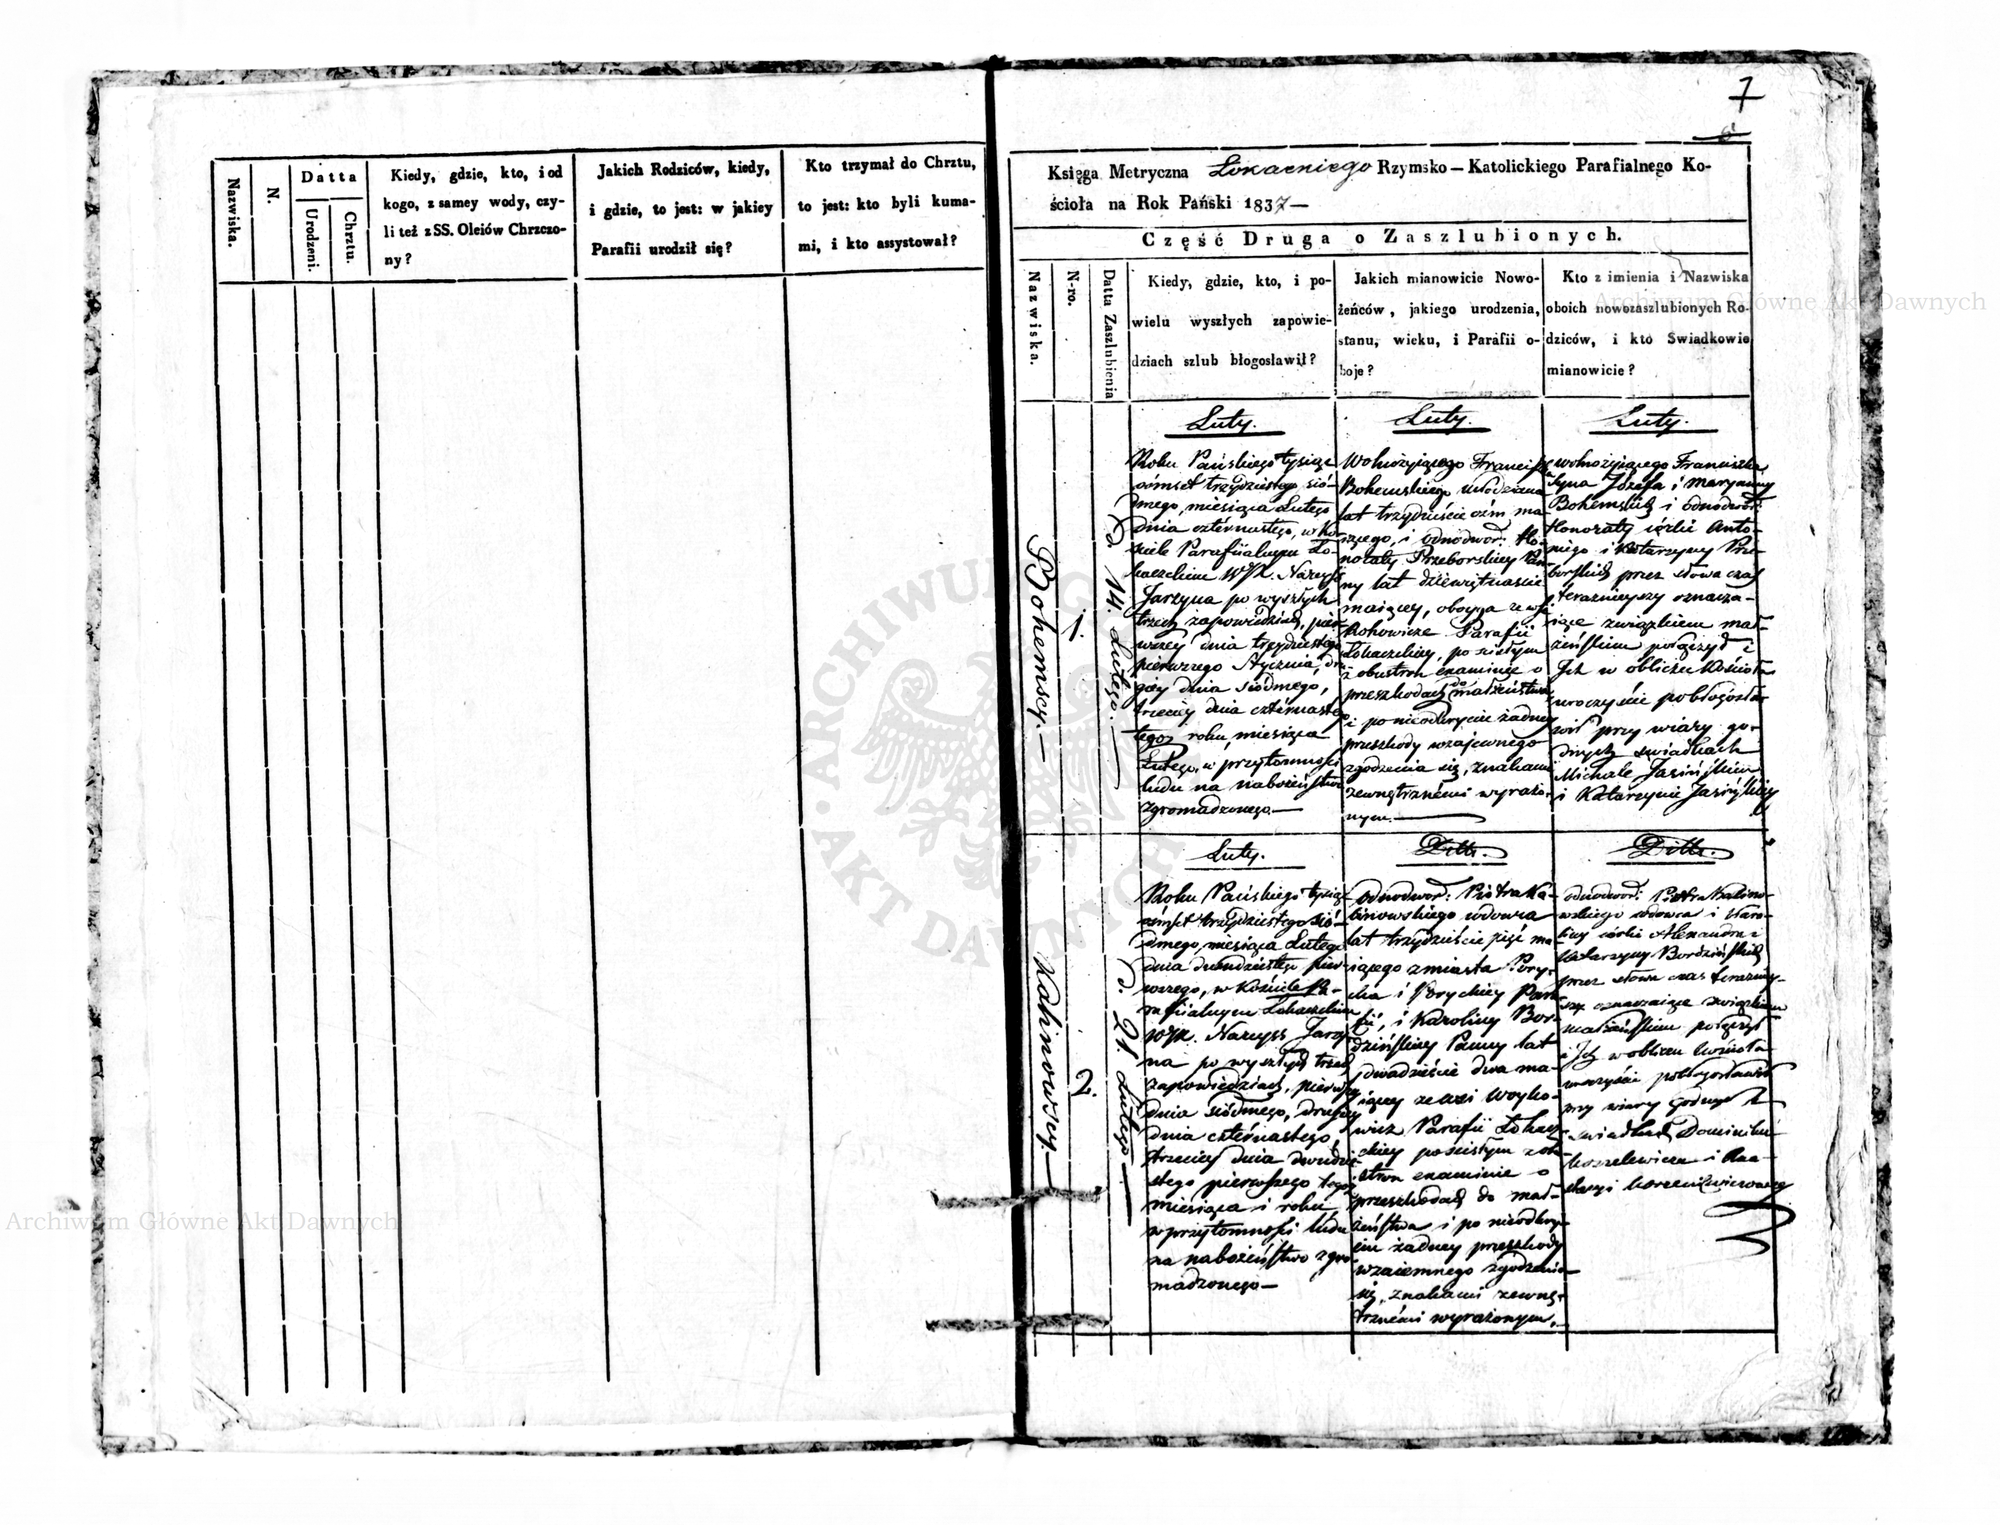 Nazwiska.
N.
Datta
Urodzeni.
Chrztu.
Kiedy, gdzie, kto, i od
kogo, z samey wody, czy-
li też z SS. Oleiów Chrzczo-
ny?
Jakich Rodziców, kiedy,
i gdzie, to jest: w jakiey
Parafii urodził się?
Kto trzymał do Chrztu,
to jest: kto byli kuma-
mi, i kto assystował?
7
Księga Metryczna Łokackiego Rzymsko-Katolickiego Parafialnego Ko-
ścioła na Rok Pański 1837 —
Część Druga o Zaszlubionych.
Nazwiska.
N-ro.
Datta Zaszlubienia
Kiedy, gdzie, kto, i po-
wielu wyszłych zapowie-
dziach szlub błogosławił?
Jakich mianowicie Nowo-
żeńców, jakiego urodzenia,
stanu, wieku, i Parafii o-
boje?
Kto z imienia i Nazwiska
oboich nowozaszlubionych Ro-
dziców, i kto Swiadkowie
mianowicie?
Bohemscy.—
1.
D. 14. Lutego.
Luty.
Roku Pańskiego tysiąc
ośmset trzydziestego sió-
dmego, miesiąca Lutego
dnia czternastego, w Ko-
ściele Parafialnym Ło-
kaczskim WJX. Narcyss
Jarzyna po wyszłych
trzech zapowiedziach, pier-
wszey dnia trzydziestego
pierwszego Stycznia, dru-
giey dnia siódmego,
trzeciey dnia czternaste-
tegoż roku, miesiąca
Lutego, w przytomności
ludu na nabożeństwo
zgromadzonego—
Luty.
Wolnożyiącego Francisz
Bohemskiego młodziana
lat trzydzieście ośm ma-
iącego, i odnodwor: Ho-
noraty Przeborskiey Pan-
ny lat dziewiętnaście
maiącey, oboyga ze wsi
Kohowicze Parafii
Łokaczskiey, po ścisłym
z obustron examinie o
przeszkodach do małżeństwa
i po nieodkryciu żadney
przeszkody wzajemnego
zgodzenia się, znakami
zewnętrznemi wyrażo-
nym.—
Luty.
wolnożyiącego Franciszka
Syna Józefa i Maryanny
Bohemskich i odnodwor:
Honoraty córki Anto-
niego i Katarzyny Prze-
borskich przez słowa czas
teraźnieyszy oznacza-
iące związkiem mał-
żeńskim połączył i
Ich w obliczu Kościoła
uroczyście pobłogosła-
wił przy wiary go-
dnych świadkach
Michale Jasińskim
i Katarzynie Jasińskiey
Kalinowscy.—
2.
D. 21. Lutego
Luty.
Roku Pańskiego tysiąc
ośmset trzydziestego sió-
dmego, miesiąca Lutego
dnia dwudziestego pier-
wszego, w Kościele Pa-
rafialnym Łokaczskim
WJX. Narcyss Jarzy-
na po wyszłych trzech
zapowiedziach, pierwszey
dnia siódmego, drugiey
dnia czternastego,
trzeciey dnia dwudzie-
stego pierwszego tegoż
miesiąca i roku,
w przytomności ludu
na nabożeństwo zgro-
madzonego—
Ditto.
odnodwor: Piotra Ka-
linowskiego wdowca
lat trzydzieście pięć ma-
iącego z miasta Pory-
cka i Poryckiey Para-
fii, i Karoliny Bor-
dzińskiey Panny lat
dwadzieście dwa ma-
iącey ze wsi Woyko-
wicz Parafii Łokacz-
skiey po ścisłym z obu-
stron examinie o
przeszkodach do mał-
żeństwa i po nieodkry-
ciu żadney przeszkody
wzaiemnego zgodzenia
się, znakami zewnę-
trznemi wyrażonym.
Ditto.
odnodwor: Piotra Kalino-
wskiego wdowca i Karo-
liny córki Alexandra i
Katarzyny Bordzińskich
przez słowa czas teraźniey-
szy oznaczaiące związkiem
małżeńskim połączył
i Ich w obliczu Kościoła
uroczyście pobłogosławił
przy wiary godnych
świadkach Dominiku
i
Archiwum Główne Akt Dawnych
Archiwum Główne Akt Dawnych
ARCHIWUM GŁÓWNE AKT DAWNYCH